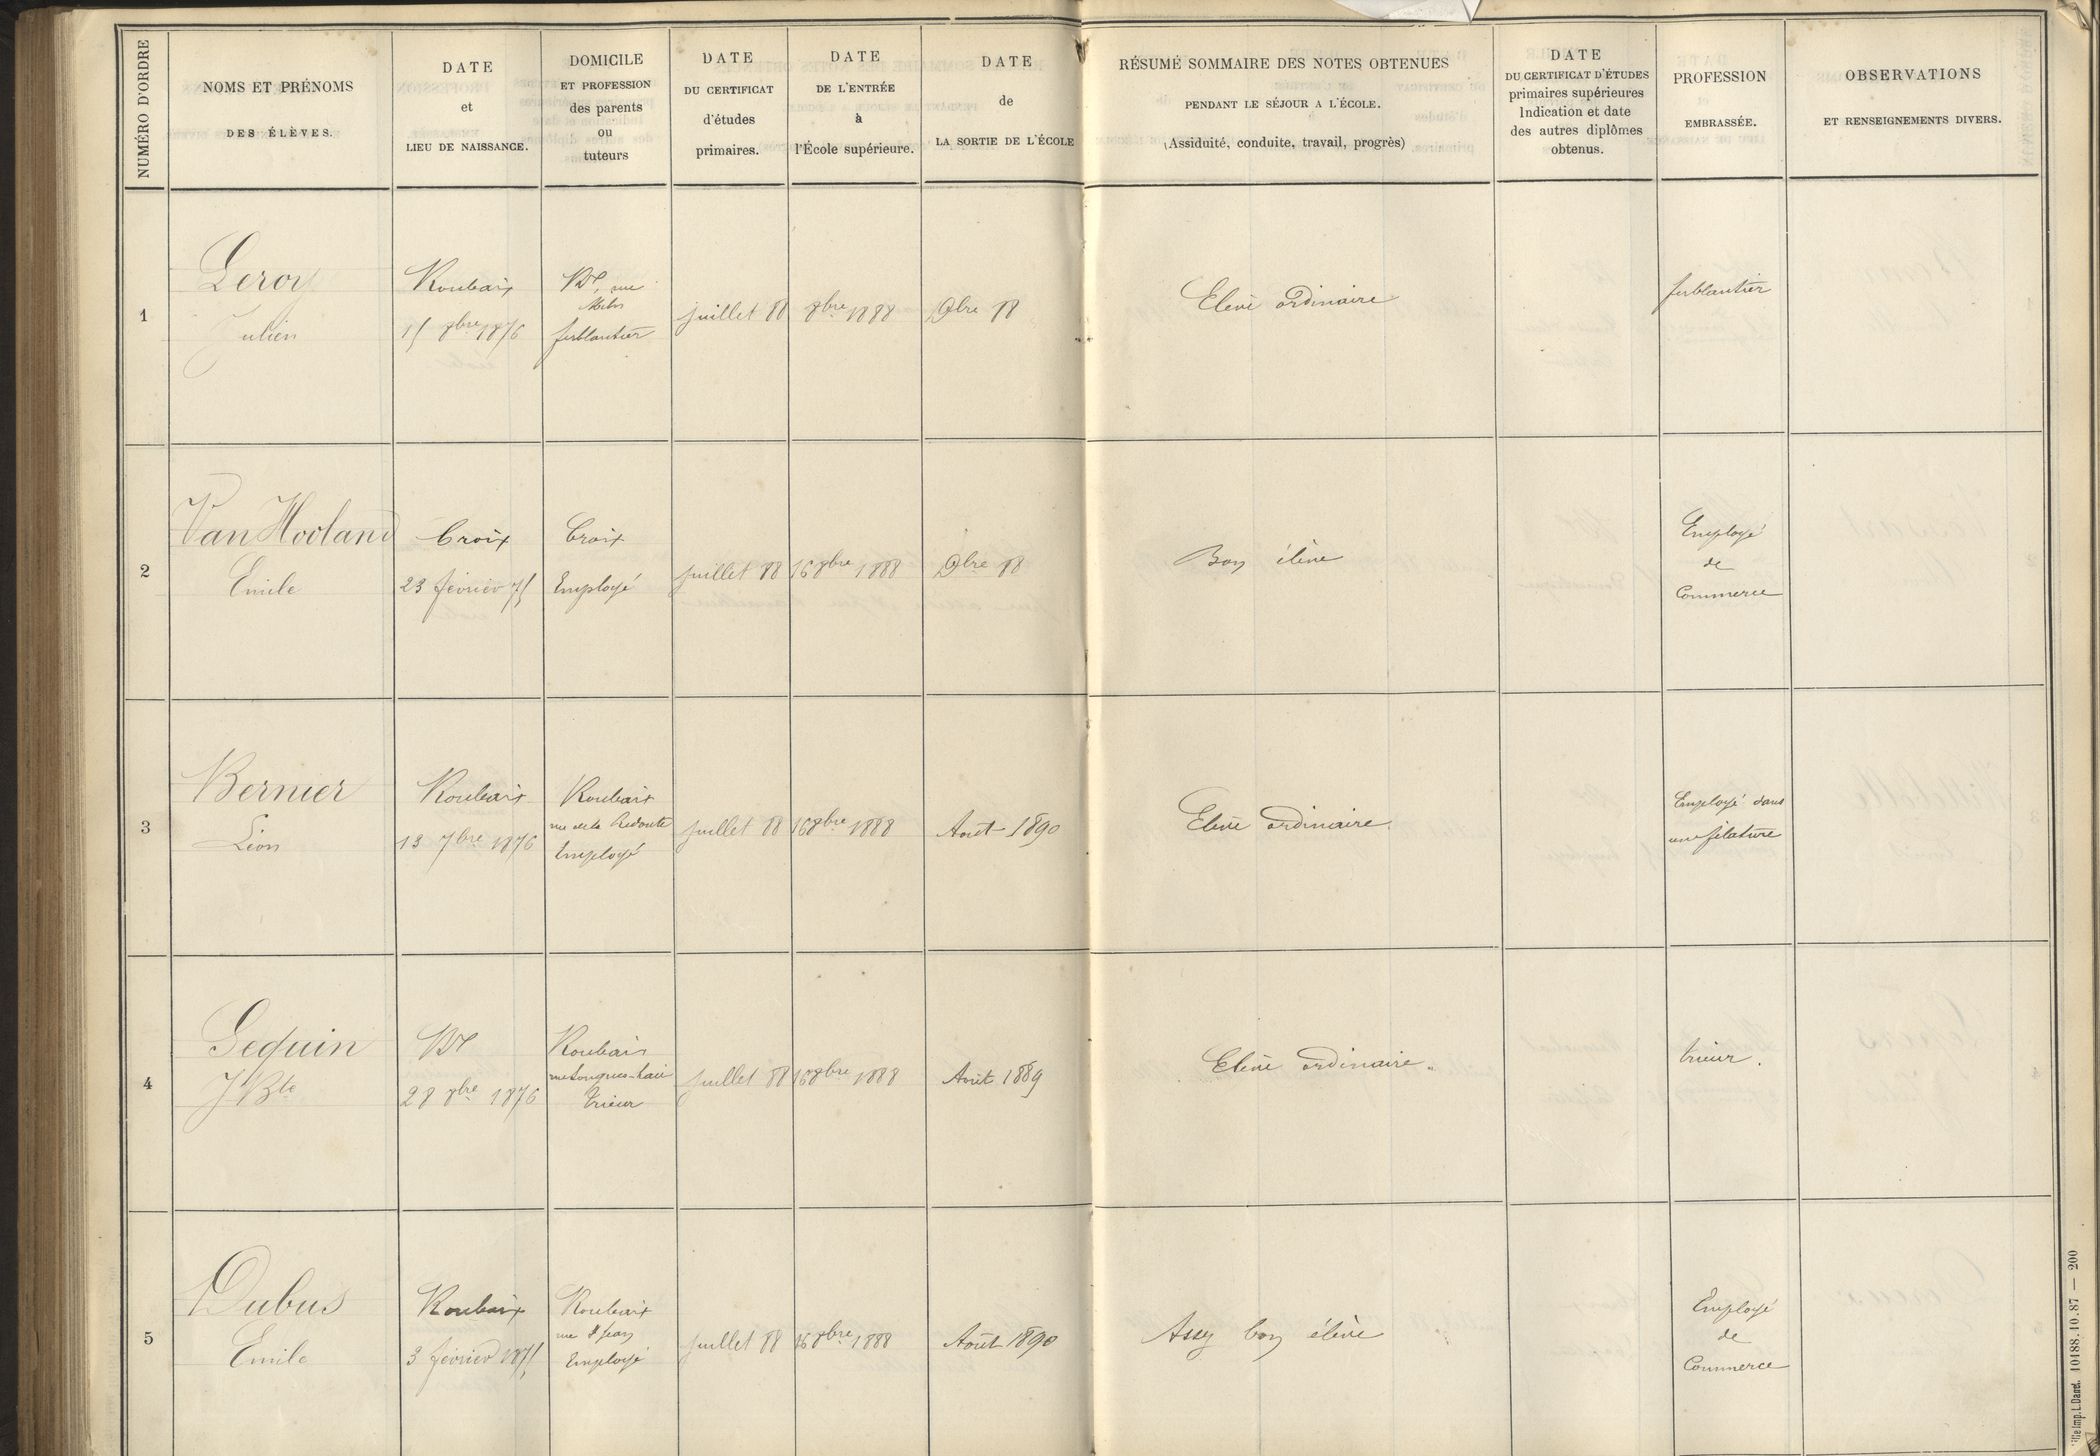 NUMÉRO D'ORDRE
NOMS ET PRÉNOMS
DES ÉLÈVES.
DATE
et
LIEU DE NAISSANCE.
DOMICILE
ET PROFESSION
des parents
ou
tuteurs
DATE
DU CERTIFICAT
d'études
primaires.
DATE
DE L'ENTRÉE
à
l'École supérieure.
DATE
de
LA SORTIE DE L'ÉCOLE
RÉSUMÉ SOMMAIRE DES NOTES OBTENUES
PENDANT LE SÉJOUR A L'ÉCOLE.
(Assiduité, conduite, travail, progrès)
DATE
DU CERTIFICAT D'ÉTUDES
primaires supérieures
Indication et date
des autres diplômes
obtenus.
PROFESSION
EMBRASSÉE.
OBSERVATIONS
ET RENSEIGNEMENTS DIVERS.
1
Leroy
Julien
Roubaix
15 8bre 1876
Rx, rue
ferblantier
juillet 88
8bre 1888
Xbre 88
Elève ordinaire
ferblantier
2
Van Hooland
Emile
Croix
23 février 75
Croix
Employé
juillet 88
16 8bre 1888
Xbre 88
Bon élève
Employé
de
Commerce
3
Bernier
Léon
Roubaix
13 7bre 1876
Roubaix
rue de la Redoute
Employé
juillet 88
16 8bre 1888
Aout 1890
Elève ordinaire.
Employé dans
une filature
4
Gequin
J Bte
Rx
28 8bre 1876
Roubaix
rue Longues-haies
trieur
juillet 88
16 8bre 1888
Août 1889
Elève ordinaire.
trieur.
5
Dubus
Emile
Roubaix
3 février 1875
Roubaix
rue St Jean
Employé
juillet 88
16 8bre 1888
Août 1890
Assez bon élève
Employé
de
Commerce
Imp. L. Danel. 10188.10.87 — 200